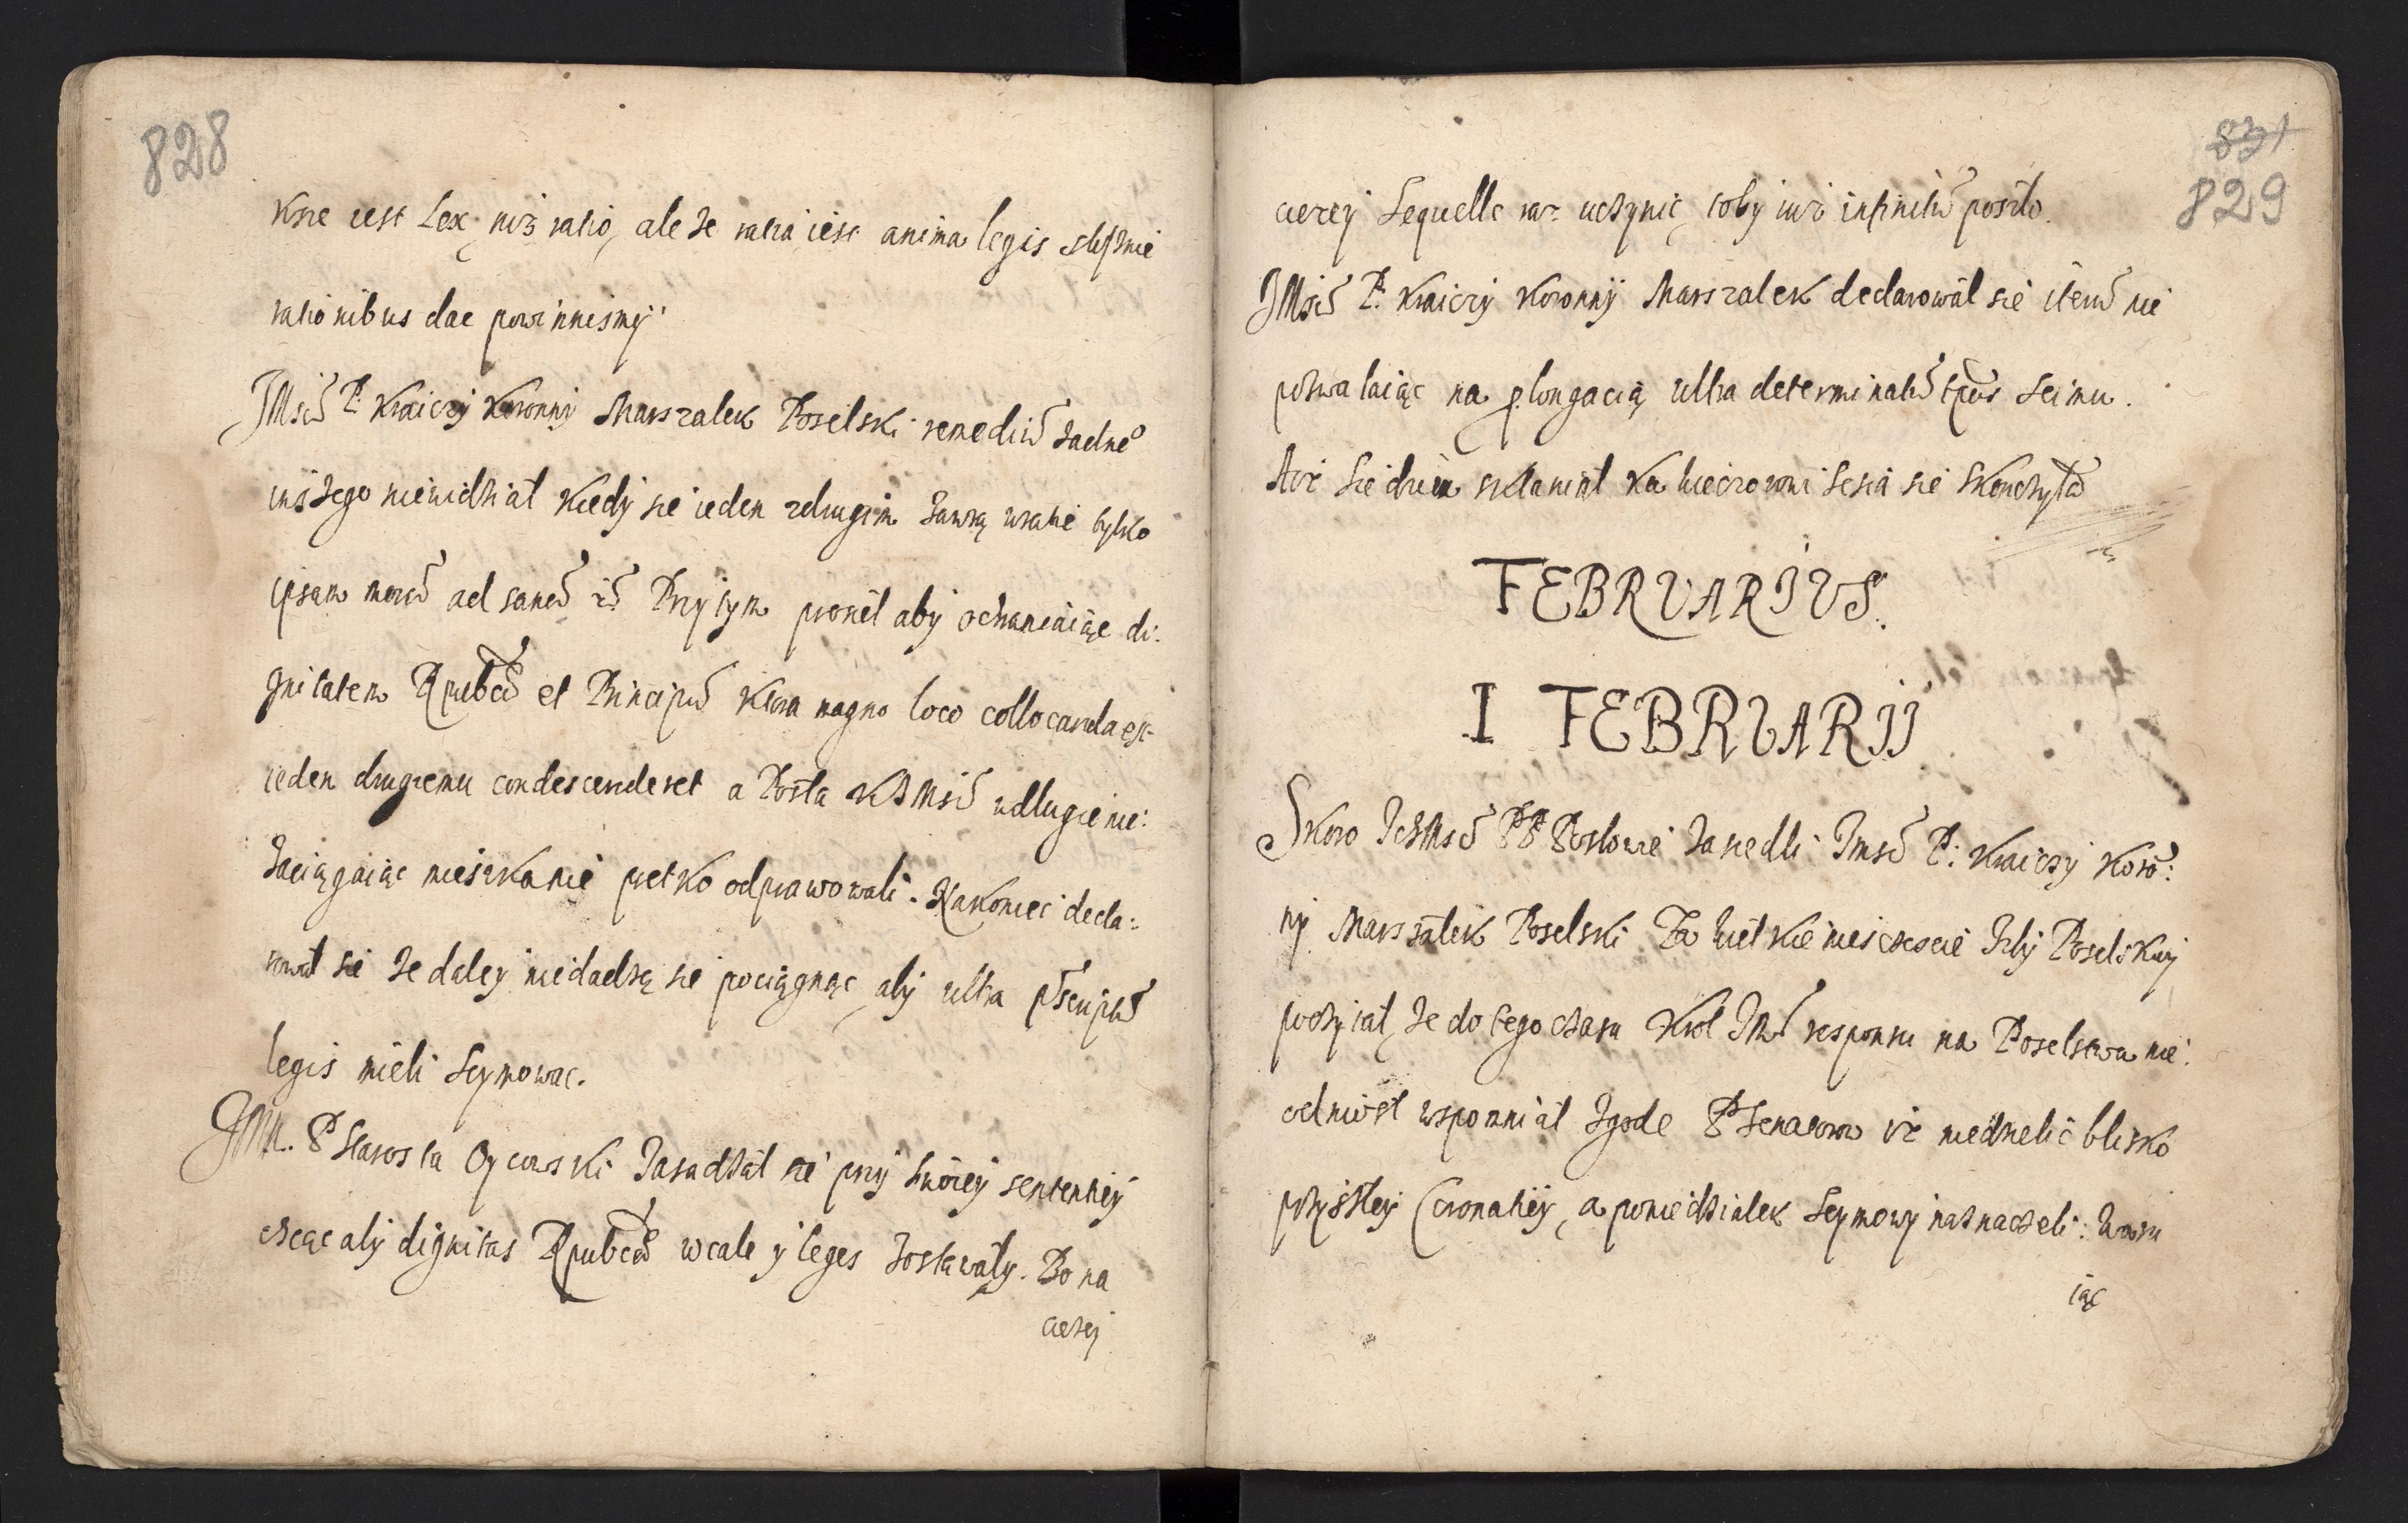 828
ksze iest Lex, niż ratio, ale że ratia iest anima legis słusznie
rationibus dac powinnismy.
JMsć P. Kraiczy Koronny Marszalek Poselski remediũ żadne°
inszego niewidział kiedy sie ieden zdrugim zawsą wraki tylko
ipsam morã ad
Przytym prosieł aby ochraniaiąc di:
gnitatem Rpubcæ et Principũ Ktora magno loco collocanda est
ieden drugiemu condescenderet a Posła KJMsci wdlugie nie:
zaciągaiąc mieszkanie pretko odprawowali. Nakoniec decla:
rowal sie że daley niedadzą sie pociągnąc, aby ultra pscriptũ
legis mieli Seymowac.
JMP. P Starosta Oycowski zasadzał sie przy swoiey sententiey
chcąc aby dignitas Rpubcæ wcale y leges zostawały. Bo na
ciezey
831
829
cierzey Sequelle raz uczynic, coby iuż infinitũ poszło.
JMsć P. Kraiczy Koronny Marszalek declarował sie iterũ nie
pozwalaiąc na plongacią ultra determinatũ tpus Seimu.
Aże sie dzien skłaniał ku wieczorowi Sesia sie skonczyła
FEBRVARIVS.
I FEBRVARII
Skoro IchMsć PP Posłowie zasiedli Jmsć P. Kraiczy Koro:
ny Marszałek Poselski Za wielkie niesczescie Izby Poselskiey
poczytał, że do tego czasu Krol JMć responsu na Poselstwa nie:
odniosł wspomniał zgode PP Senatorow iż niedzielie blisko
przyszłey Coronatiey, a poniedziałek Seymowy naznaczeli: Waru
iąc